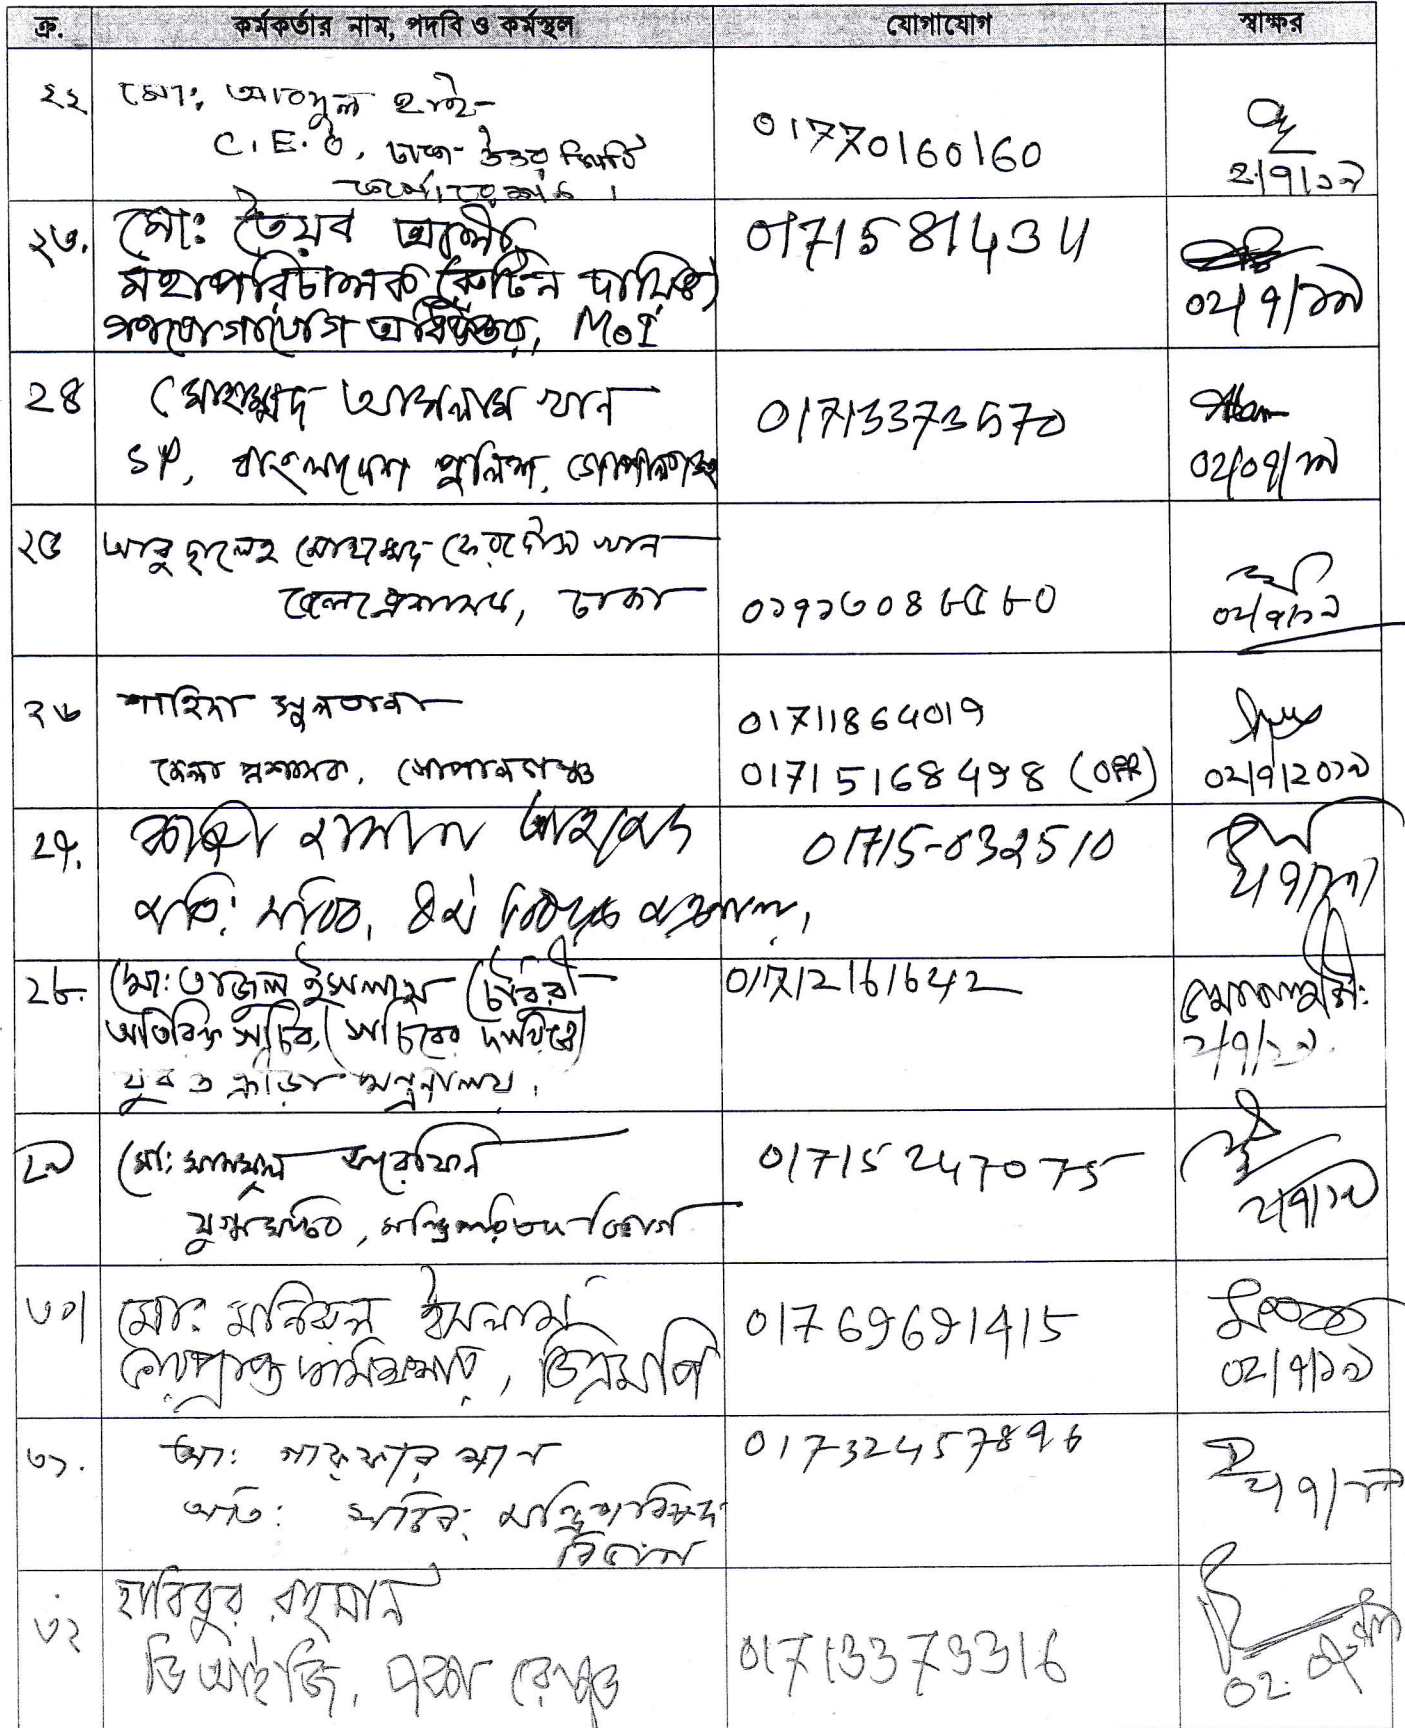 ক্র. কর্মকর্তার নাম, পদবি ও কর্মস্থল যোগাযোগ স্বাক্ষর
২২ মো: আবদুল হাই
C.E.O, ঢাকা উত্তর সিটি
কর্পোরেশন। 01770160160
২/৭/১৯
২৩. মো: তৈয়ব আলী
মহাপরিচালক (রুটিন দায়িত্ব)
গণযোগাযোগ অধিদপ্তর, MoI 0171581434
02/৭/১৯
২৪ মোহাম্মদ খান
SP, বাংলাদেশ পুলিশ, গোপালগঞ্জ 01713373570
02/০৭/১৯
২৫ আবু ছালেহ মোহাম্মদ ফেরদৌস খান
জেলা প্রশাসক, ঢাকা ০১৭১৩০৪৮৫৮০
০২/৭/১৯
২৬ শাহিদা সুলতানা
জেলা প্রশাসক, গোপালগঞ্জ
01711864019
01715168498
02/৭/2০১৯
২৭. কাজী হাসান আহমেদ
অতি: সচিব, 01715-032510
২/৭/১৯
২৮. মো: তাজুল ইসলাম চৌধুরী
অতিরিক্ত সচিব, (সচিবের দায়িত্বে)
যুব ও ক্রীড়া মন্ত্রণালয়। 01712161642
২/৭/১৯
২৯ মো: সামসুল আরেফিন
যুগ্মসচিব, মন্ত্রিপরিষদ বিভাগ 01715247075
২/৭/১৯
৩০। মোঃ মনিরুল ইসলাম
ভারপ্রাপ্ত কমিশনার, ডিএমপি 01769691415
02/৭/১৯
৩১. আ: গাফফার খান
অতি: সচিব, মন্ত্রিপরিষদ
বিভাগ 01732457896
২/৭/১৯
৩২ হাবিবুর রহমান
ডিআইজি, ঢাকা রেঞ্জ 01713373316